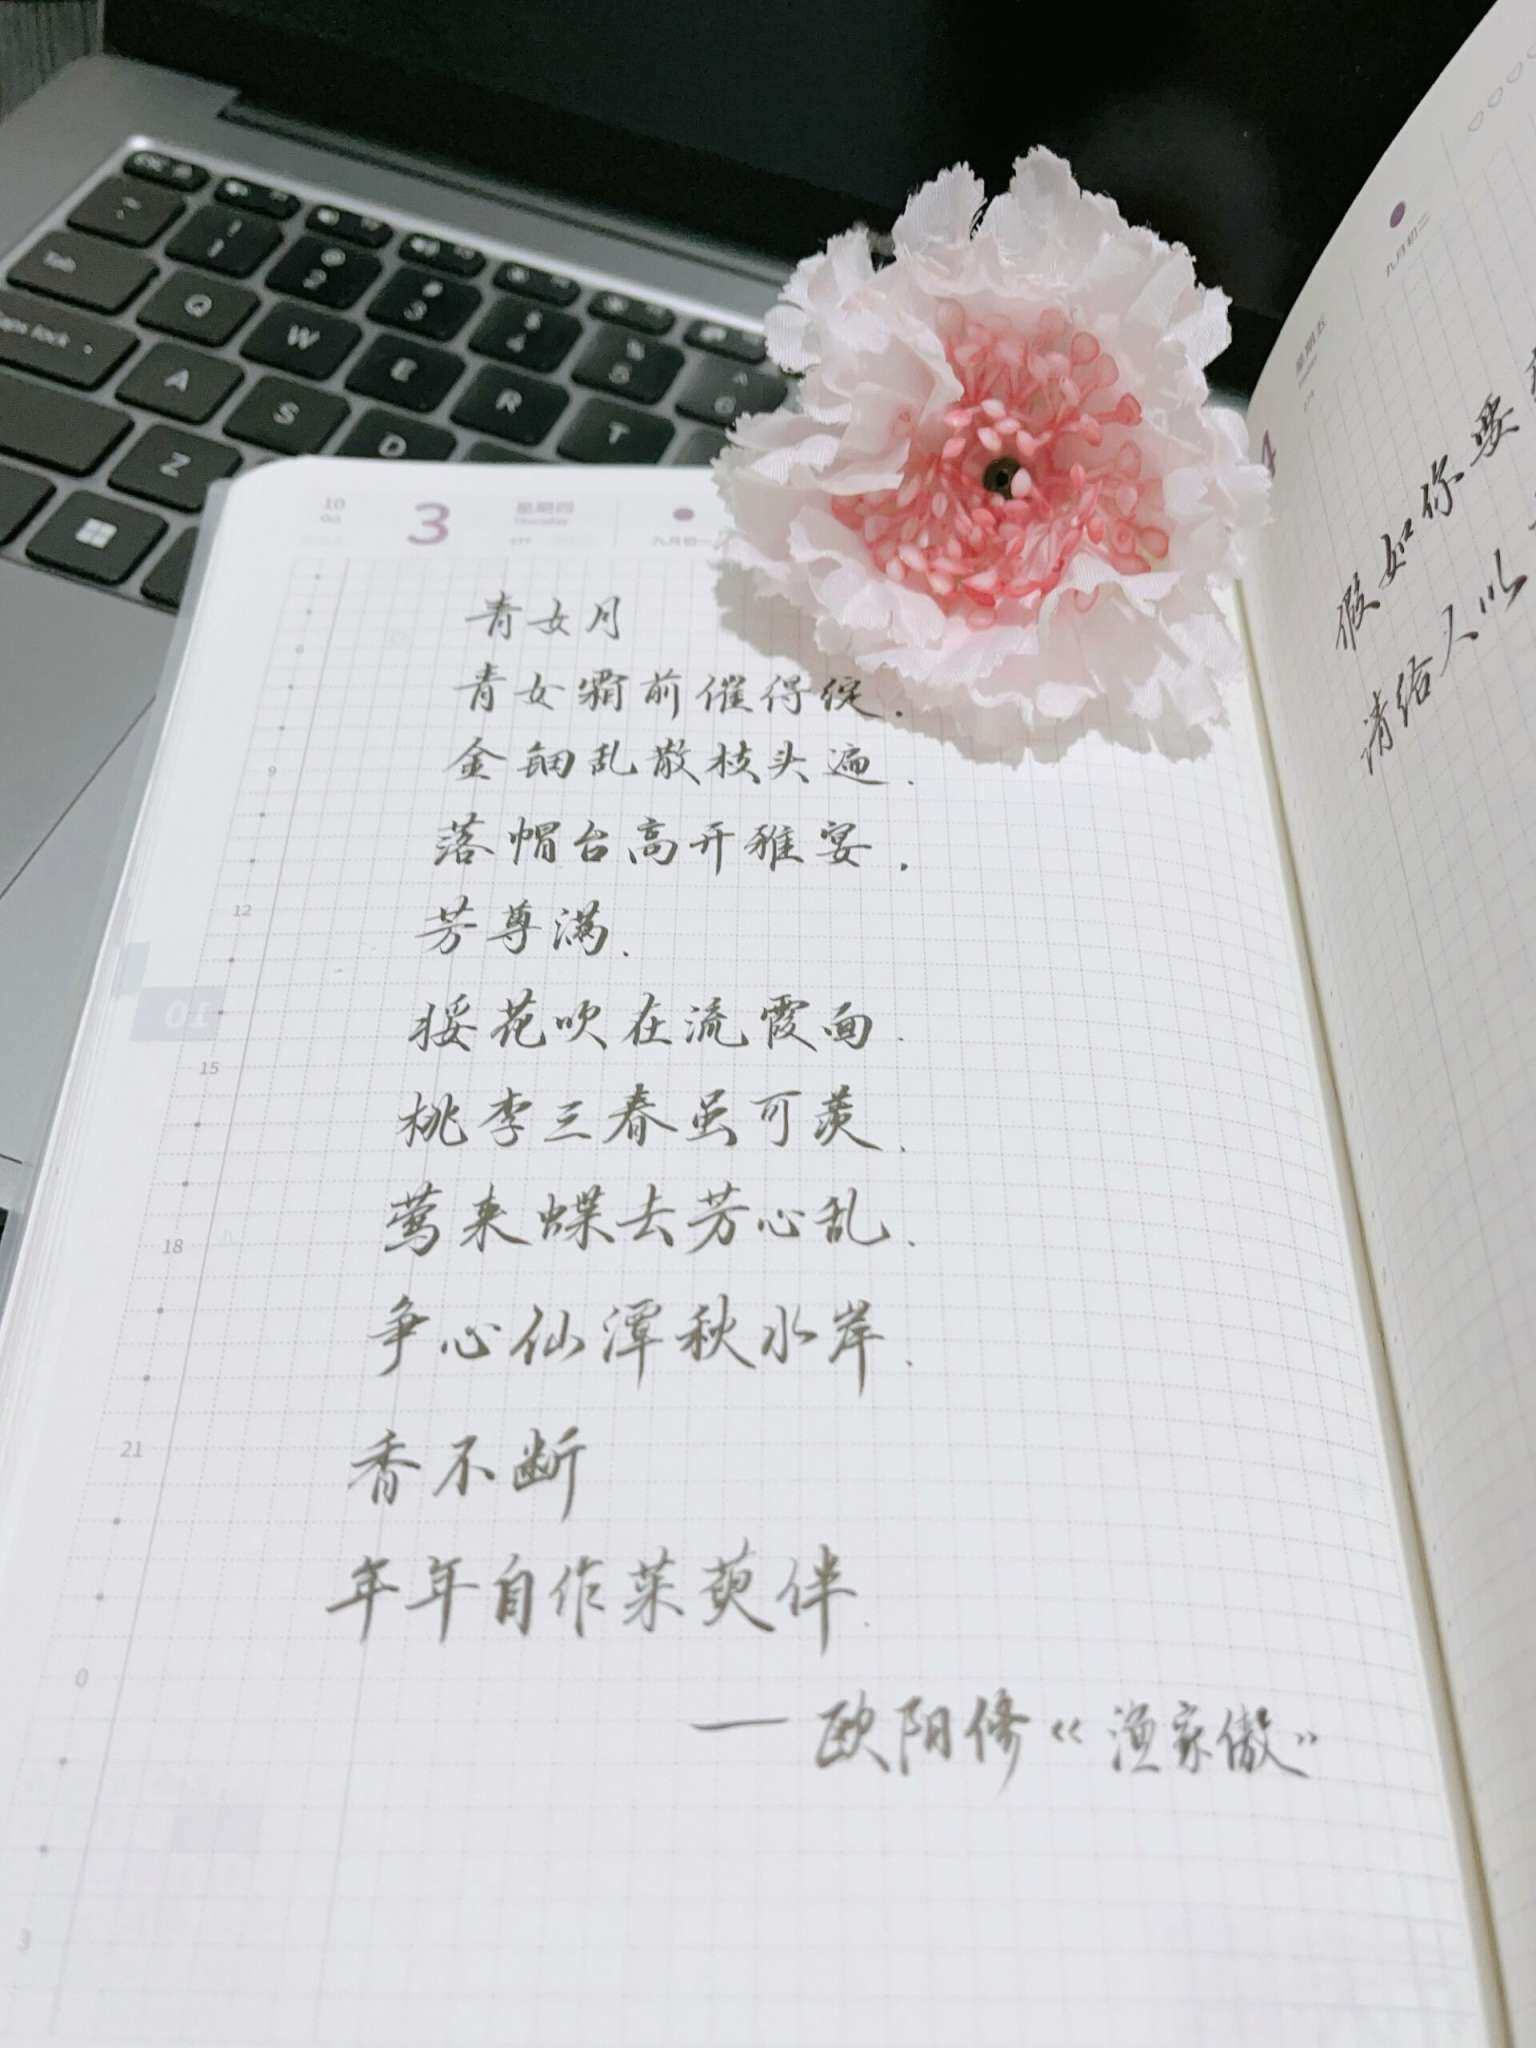 Tab
Q
W
E
R
T
A
S
D
Z
1
2
3
4
5
10
Oct
3
星期四
Thursday
277
九月初一
青女月
青女霜前催得绽.
金钿乱散枝头遍.
落帽台高开雅宴.
芳尊满.
挼花吹在流霞面.
桃李三春虽可羡.
莺来蝶去芳心乱.
争心仙潭秋水岸.
香不断
年年自作茱萸伴.
——欧阳修《渔家傲》
6
9
12
15
18
21
0
3
10
九月初二
星期五
假如你要
请给人以